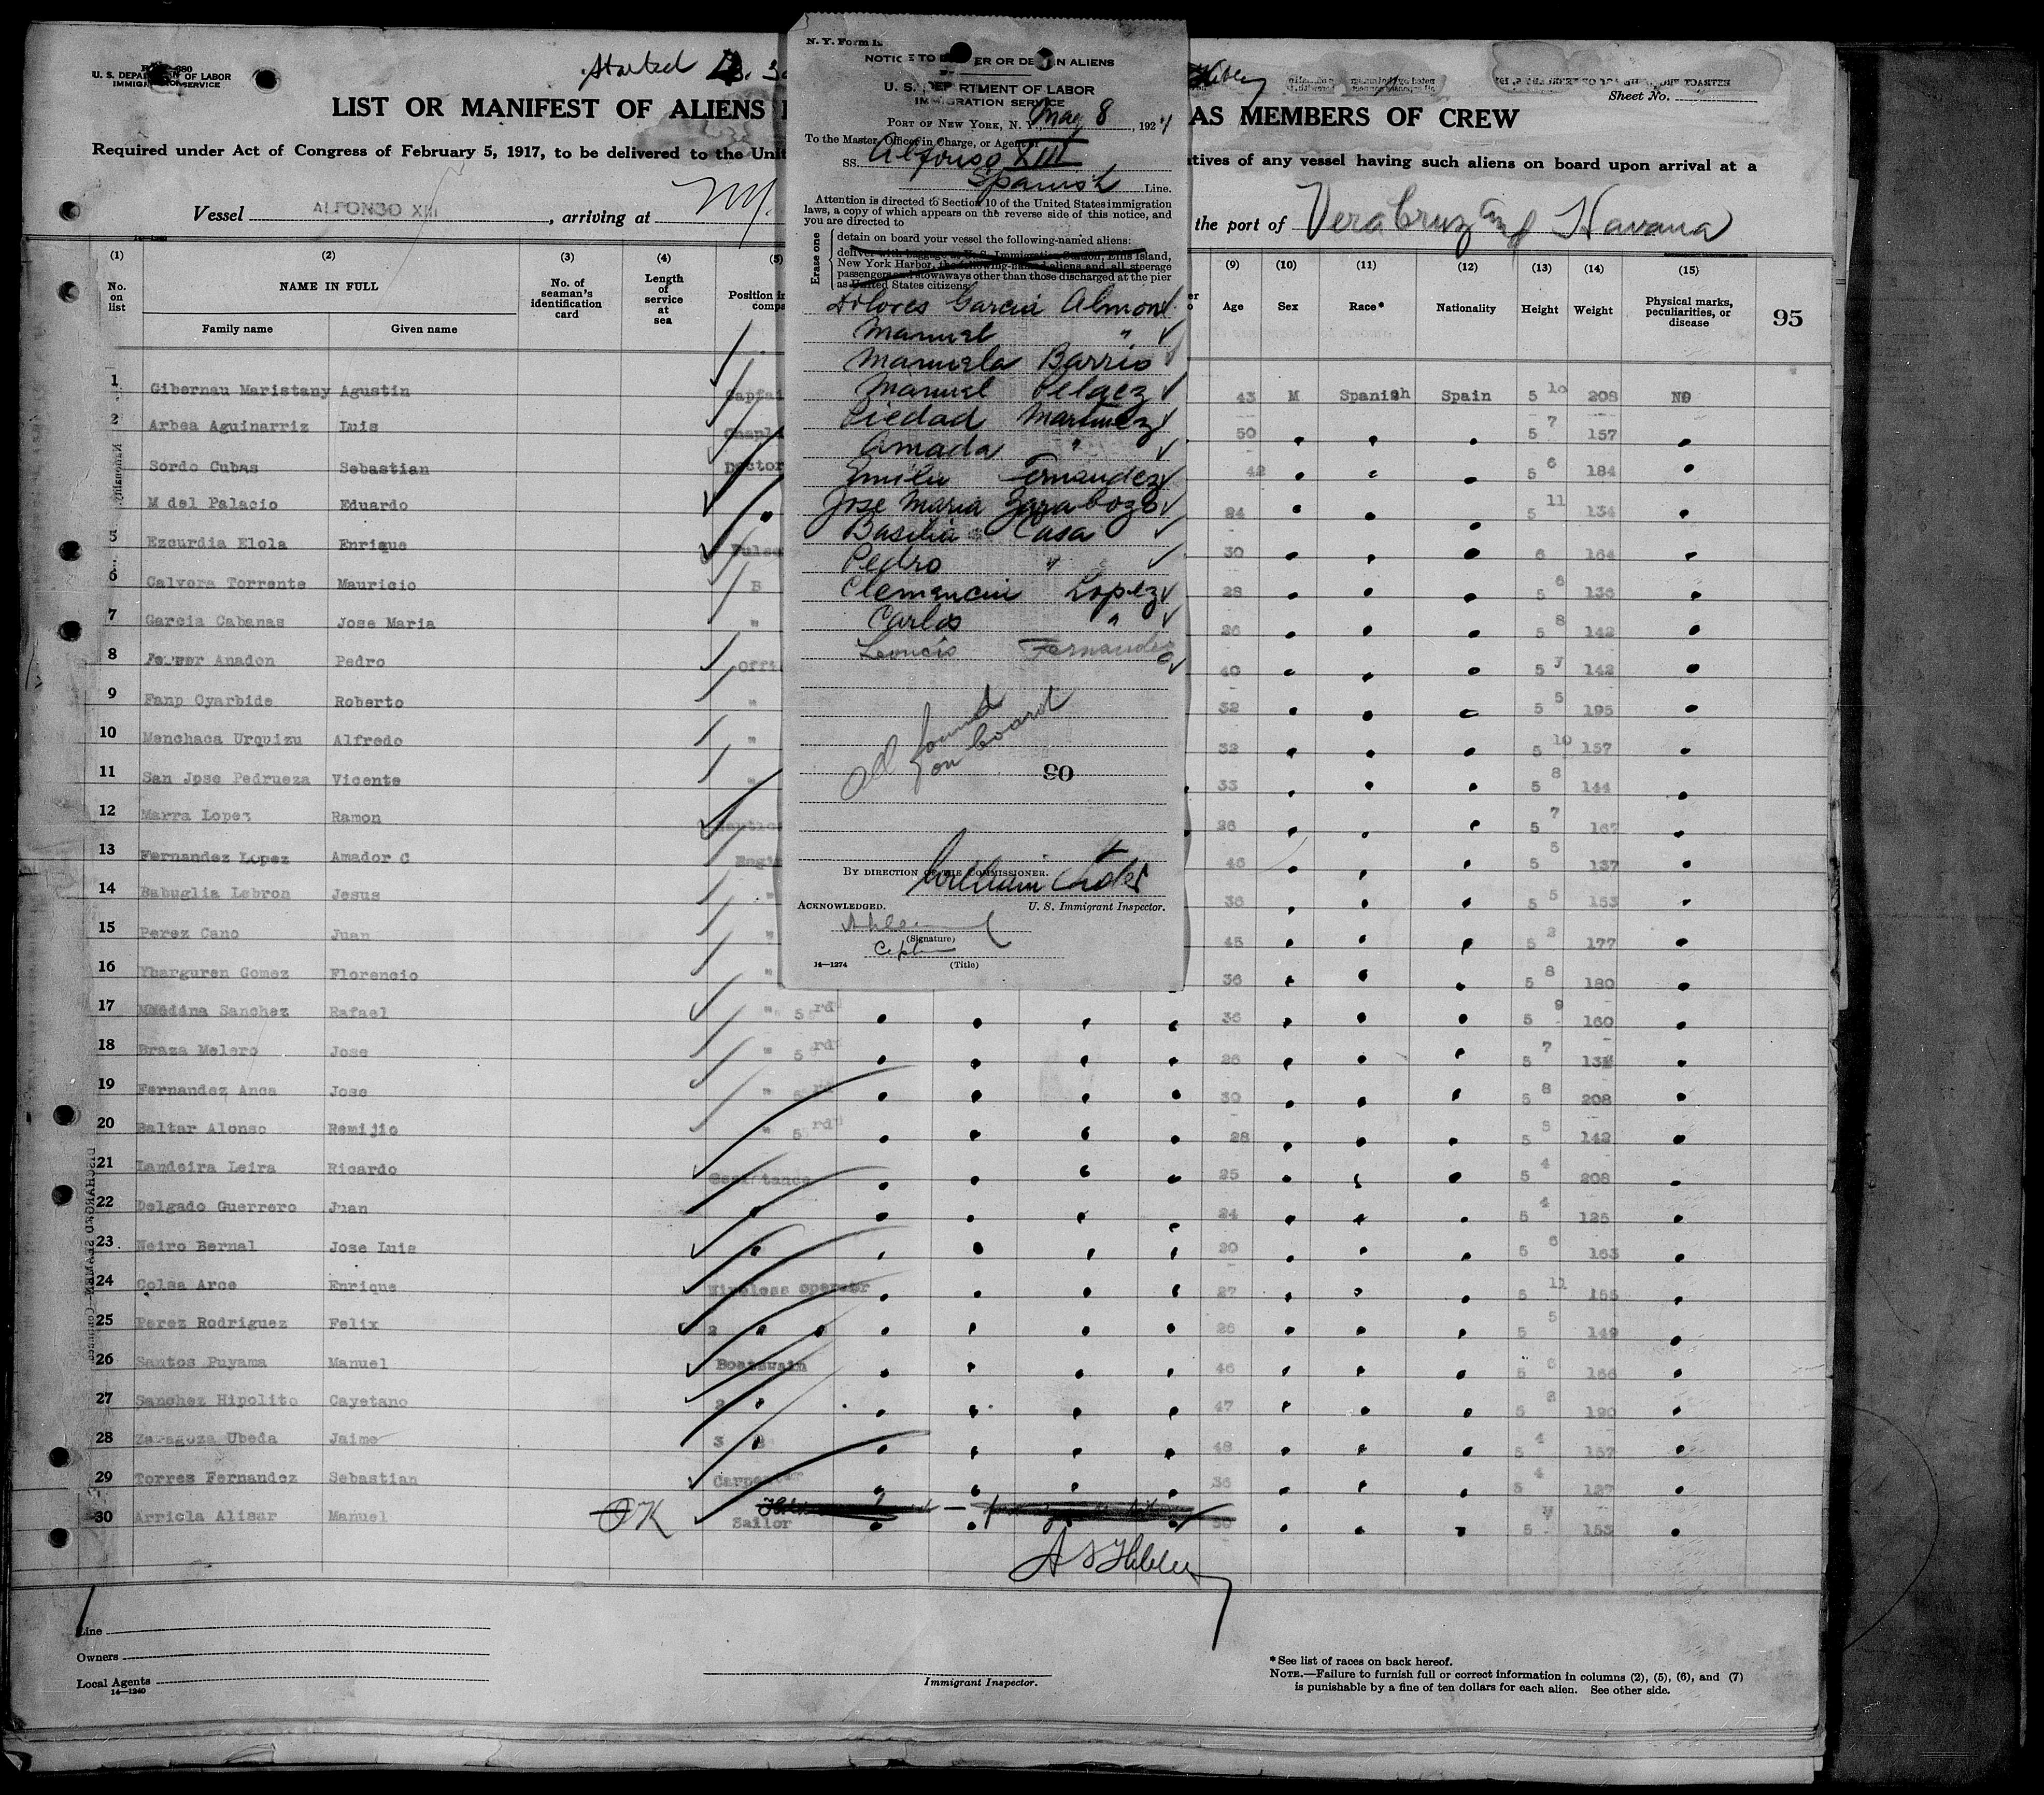 U. S. DEPARTMENT OF LABOR
IMMIGRATION SERVICE
Started
Sheet No.
LIST OR MANIFEST OF ALIENS
AS MEMBERS OF CREW
Required under Act of Congress of February 5, 1917, to be delivered to the
tives of any vessel having such aliens on board upon arrival at a
Vessel ALFONSO XIII, arriving at
the port of Vera Cruz and Havana
N. Y. Form
NOTICE TO DELIVER OR DETAIN ALIENS
U. S. DEPARTMENT OF LABOR
IMMIGRATION SERVICE
PORT OF NEW YORK, N. Y., May 8, 192
To the Master, Officer in Charge, or Agent of
SS. Alfonso XIII
Spanish Line.
Attention is directed to Section 10 of the United States immigration
laws, a copy of which appears on the reverse side of this notice, and
you are directed to
Erase one
detain on board your vessel the following-named aliens:
deliver with baggage at U. S. Immigration Station, Ellis Island,
New York Harbor, the following-named aliens and all steerage
passengers and stowaways other than those discharged at the pier
as United States citizens:
Dolores Garcia Almon
Manuel "
Manuela Barrio
Manuel Pelaez
Piedad Martinez
Amada "
Emilio Fernandez
Jose Maria Zarabozo
Basilia Casa
Pedro "
Clemencia Lopez
Carlos "
Leoncio Fernandez
found
on board
90
BY DIRECTION OF THE COMMISSIONER.
William
U. S. Immigrant Inspector.
ACKNOWLEDGED.
(Signature)
(Title)
14—1274
(1) (2) (3) (4) (5) (9) (10) (11) (12) (13) (14) (15)
No. on list NAME IN FULL No. of seaman's identification card Length of service at sea Position in Age Sex Race* Nationality Height Weight Physical marks, peculiarities, or disease 95
Family name Given name
1 Gibernau Maristany Agustin 43 M Spanish Spain 5 10 208 NO
2 Arbea Aguinarriz Luis 50 5 7 157
Sordo Cubas Sebastian Doctor 42 5 6 184
M del Palacio Eduardo " 24 5 11 134
5 Ezcurdia Elola Enrique 30 6 164
6 Calvera Torrente Mauricio 28 5 6 136
7 Garcia Cabanas Jose Maria " 26 5 8 142
8 Ferrer Anadon Pedro 40 5 7 142
9 Fano Oyarbide Roberto " 32 5 5 195
10 Menchaca Urquizu Alfredo " 32 5 10 157
11 San Jose Pedrueza Vicente " 33 5 8 144
12 Marra Lopez Ramon 26 5 7 167
13 Fernandez Lopez Amador C 46 5 5 137
14 Babuglia Lebron Jesus " 36 5 5 153
15 Perez Cano Juan " 45 5 177
16 Ybarguren Gomez Florencio " 36 5 8 180
17 Medina Sanchez Rafael " 36 5 9 160
18 Braza Melero Jose " 26 5 7
19 Fernandez Anca Jose " 30 5 8 208
20 Baltar Alonso Remijio " 28 5 5 142
21 Landeira Leira Ricardo 25 5 4 208
22 Delgado Guerrero Juan " 24 5 4 125
23 Neiro Bernal Jose Luis " 20 5 6 163
24 Colsa Arce Enrique Wireless operator 27 5 11 165
25 Perez Rodriguez Felix 2 " " 26 5 5 149
26 Santos Puyama Manuel Boatswain 46 5 6 166
27 Sanchez Hipolito Cayetano 2 " 47 5 8 190
28 Zaragoza Ubeda Jaime 3 " 48 5 4 157
29 Torres Fernandez Sebastian Carpenter 36 5 4 127
30 Arricla Alisar Manuel OK Sailor 30 5 7 153
Line
Owners
Local Agents
14—1240
Immigrant Inspector.
*See list of races on back hereof.
NOTE.—Failure to furnish full or correct information in columns (2), (5), (6), and (7)
is punishable by a fine of ten dollars for each alien. See other side.